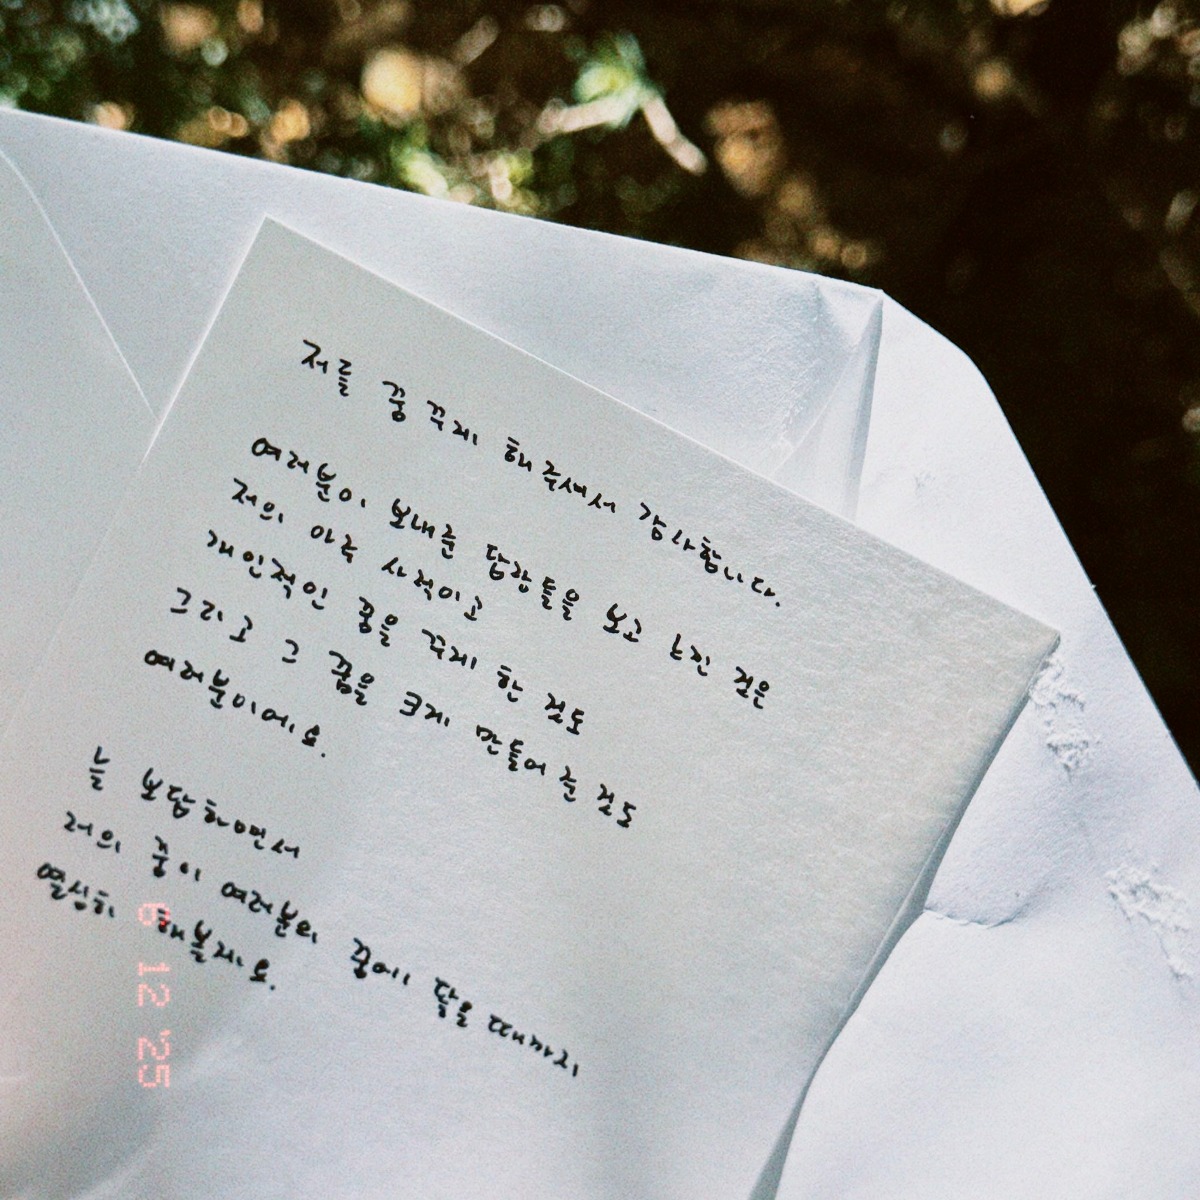 저를 꿈 꾸게 해 주셔서 감사합니다.
여러분이 보내준 답장들을 보고 느낀 것은
저의 아주 사적이고
개인적인 꿈을 꾸게 한 것도
그리고 그 꿈을 크게 만들어 준 것도
여러분이에요.
늘 보답하면서
저의 꿈이 여러분의 꿈에 닿을 때까지
열심히 해볼게요.
6 12 '25